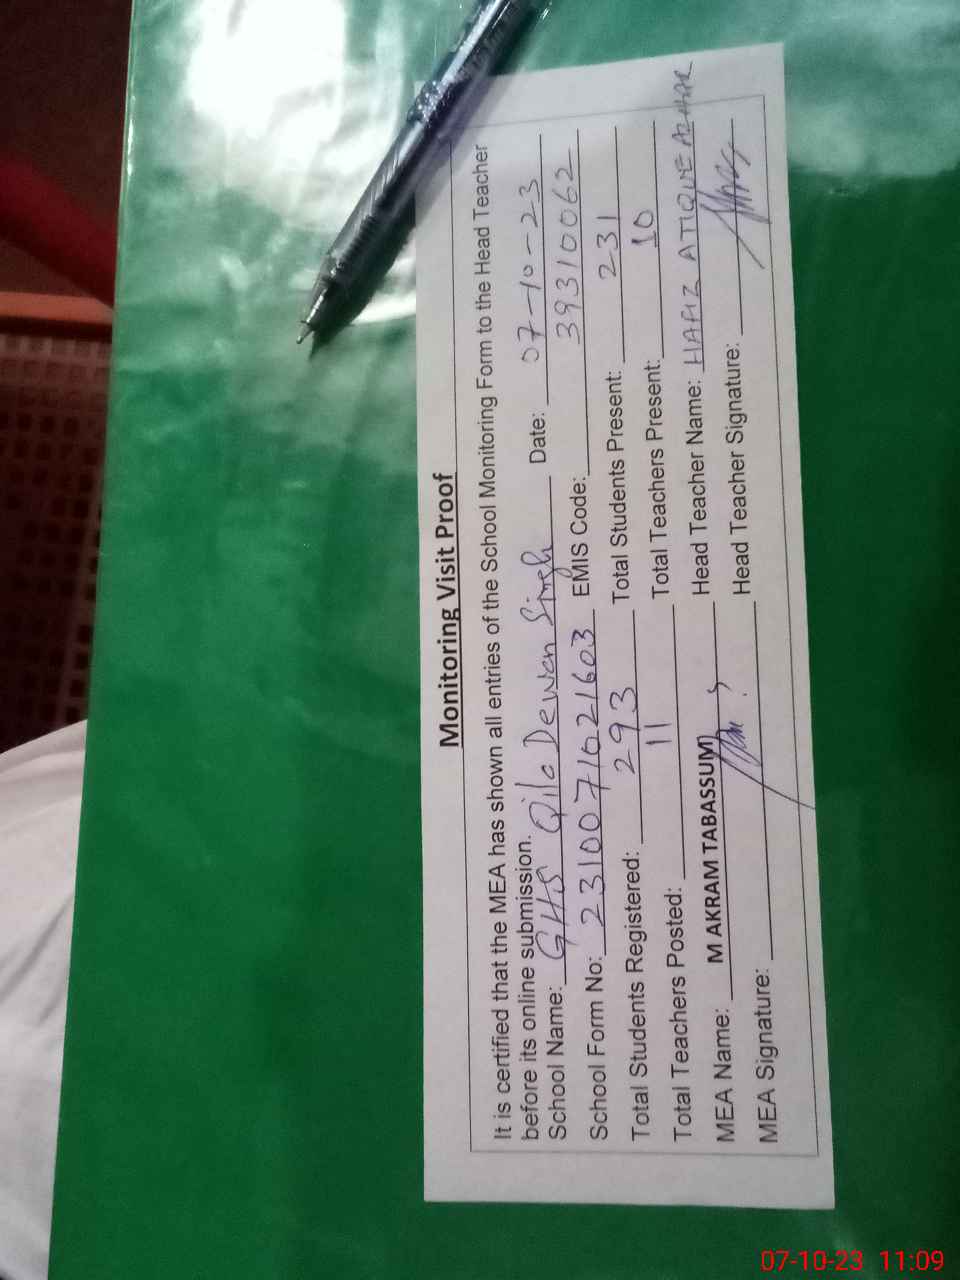 Monitoring Visit Proof
It is certified that the MEA has shown all entries of the School Monitoring Form to the Head Teacher
before its online submission.
School Name: GHS Qila Dewan Singh Date: 07-10-23
School Form No: 2310071621603 EMIS Code: 39310062
Total Students Registered: 293 Total Students Present: 231
Total Teachers Posted: 11 Total Teachers Present: 10
MEA Name: M AKRAM TABASSUM) Head Teacher Name: HAFIZ ATIQUE AZHAR
MEA Signature: Head Teacher Signature:
07-10-23 11:09